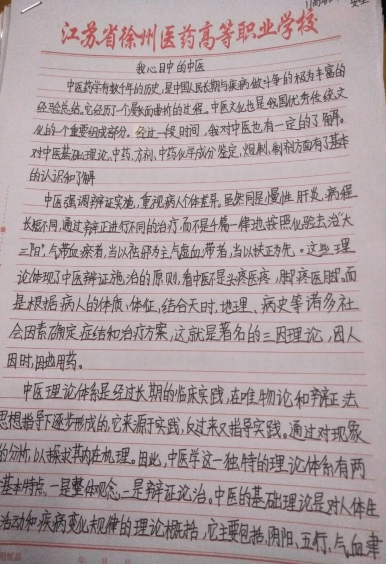 江苏省徐州医药高等职业学校
我心目中的中医
中医药学有数千年的历史,是中国人民长期与疾病做斗争的极为丰富的
经验总结。它经历了一个漫长而曲折的过程。中医文化也是我国优秀传统文
化的一个重要组成部分。经过一段时间,我对中医也有一定的了解。
对中医基础理论、中药、方剂、中药化学成分鉴定,炮制,制剂方面有了基本
的认识和了解
中医强调辨证实施,重视病人个体差异。虽然同是慢性肝炎,病程
长短不同,通过辨正进行不同的治疗,而不是千篇一律地按照化验去治"大
三阳"。气滞血瘀着,当以祛邪为主气虚血滞者,当以扶正为先。这些理
论体现了中医辨证施治的原则,看中医不是头疼医疼,脚疼医脚。而
是根据病人的体质、体征,结合天时、地理、病史等诸多社
会因素确定症结和治疗方案,这就是著名的三因理论,因人
因时,因地用药。
中医理论体系是经过长期的临床实践,在唯物论和辩正法
思想指导下逐步形成的,它来源于实践,反过来又指导实践。通过对现象
的分析,以探求其内在机理。因此,中医学这一独特的理论体系有两
基本特点,一是整体观念,二是辩证论治。中医的基础理论是对人体生
活动和疾病变化规律的理论概括,它主要包括,阴阳、五行、气血津